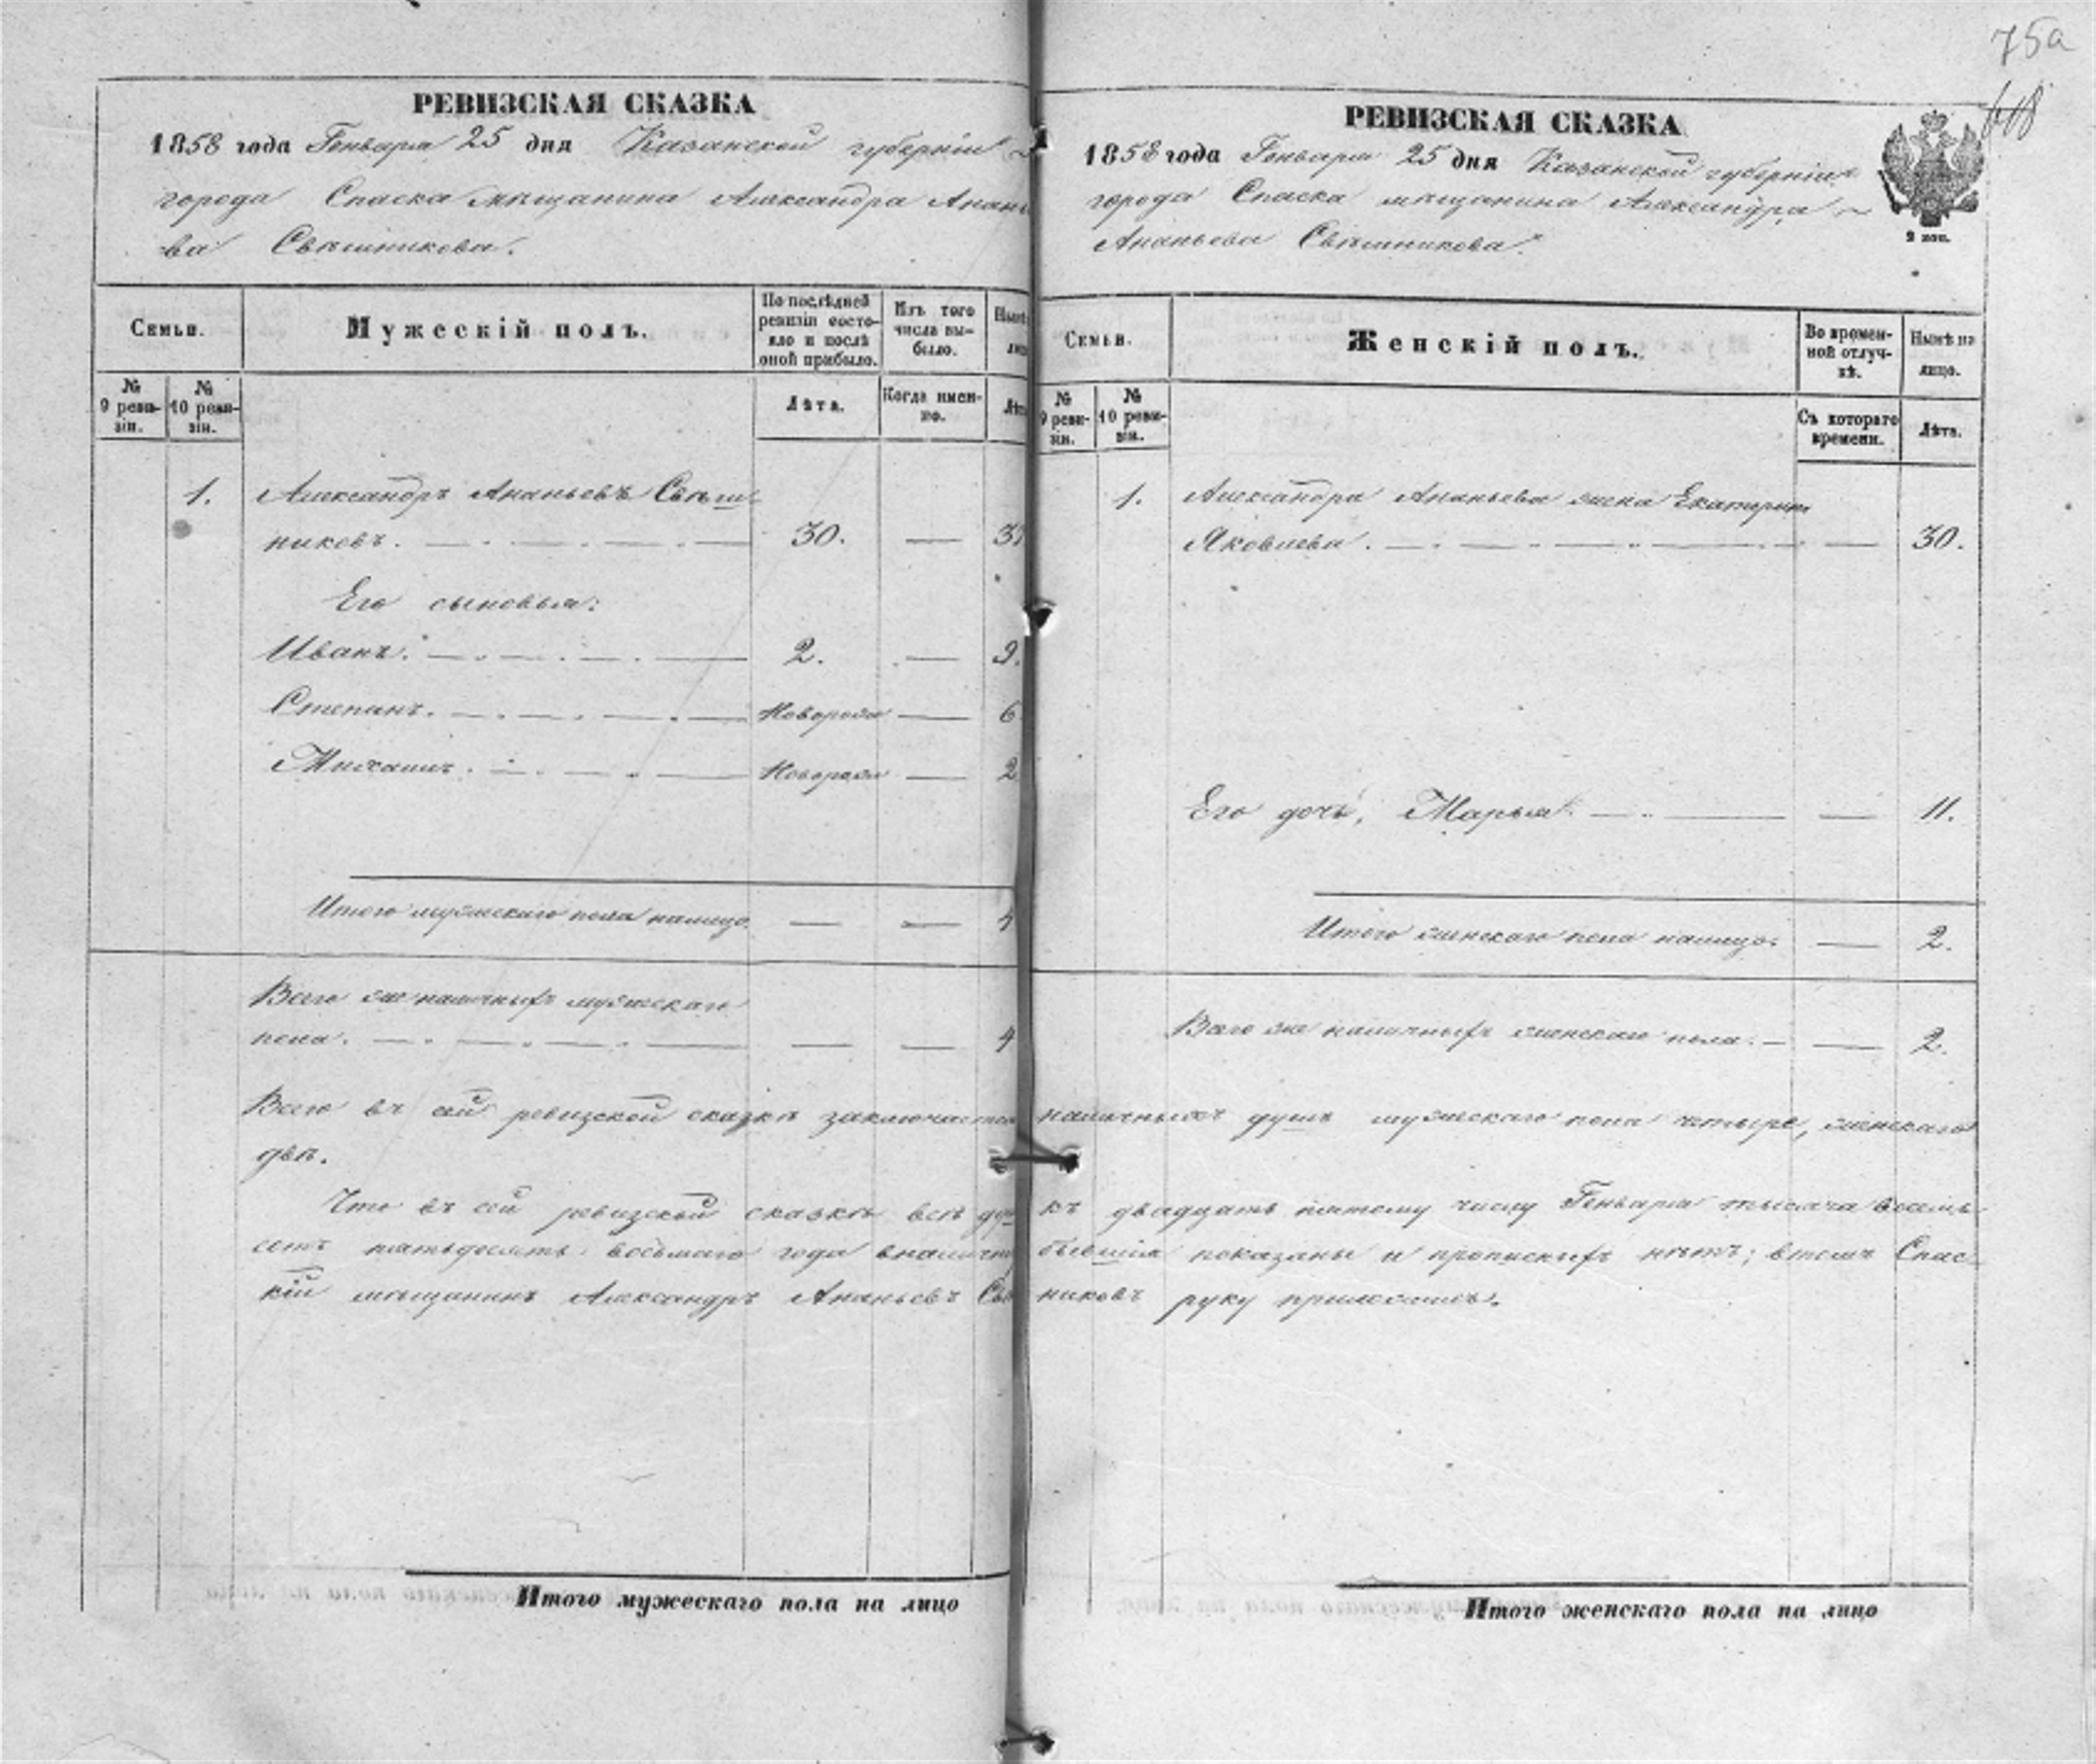 75а
РЕВИЗСКАЯ СКАЗКА
1858 года Генваря 25 дня Казанской губерніи
города Спаска мѣщанина Александра Анань
ва Свѣшникова.
Семьи.
Мужескій полъ.
По послѣдней
ревизіи состо-
яло и послѣ
оной прибыло.
Изъ того
числа вы-
было.
№
9 реви-
зіи.
№
10 реви-
зіи.
Лѣта.
Когда имен-
но.
1. Александръ Ананьевъ Свѣш-
никовъ. 30. — 37
Его сыновья:
Иванъ. 2. — 9.
Степанъ. Новорож — 6
Михаилъ. Новорож — 2
Итого мужескаго пола налицо. — — 4
Всего же наличныхъ мужескаго
пола. — — 4
РЕВИЗСКАЯ СКАЗКА
1858 года Генваря 25 дня Казанской губерніи
города Спаска мѣщанина Александра
Ананьева Свѣшникова.
2 коп.
Семьи.
Женскій полъ.
Во времен-
ной отлуч-
кѣ.
Нынѣ на
лицо.
№
9 реви-
зіи.
№
10 реви-
зіи.
Съ котораго
времени.
Лѣта.
1. Александра Ананьева жена Екатерина
Яковлева. — 30.
Его дочь, Марья — 11.
Итого женскаго пола налицо. — 2.
Всего же наличныхъ женскаго пола. — 2.
Всего въ сей ревизской сказкѣ заключается наличныхъ душъ мужескаго пола четыре, женскаго
двѣ.
Что въ сей ревизской сказкѣ всѣ ду къ двадцать пятому числу Генваря тысяча восемь
сотъ пятьдесятъ восьмаго года вналично бывшія показаны и прописныхъ нѣтъ; втомъ Спас-
кій мѣщанинъ Александръ Ананьевъ Свѣ никовъ руку приложилъ.
Итого мужескаго пола на лицо
Итого женскаго пола на лицо